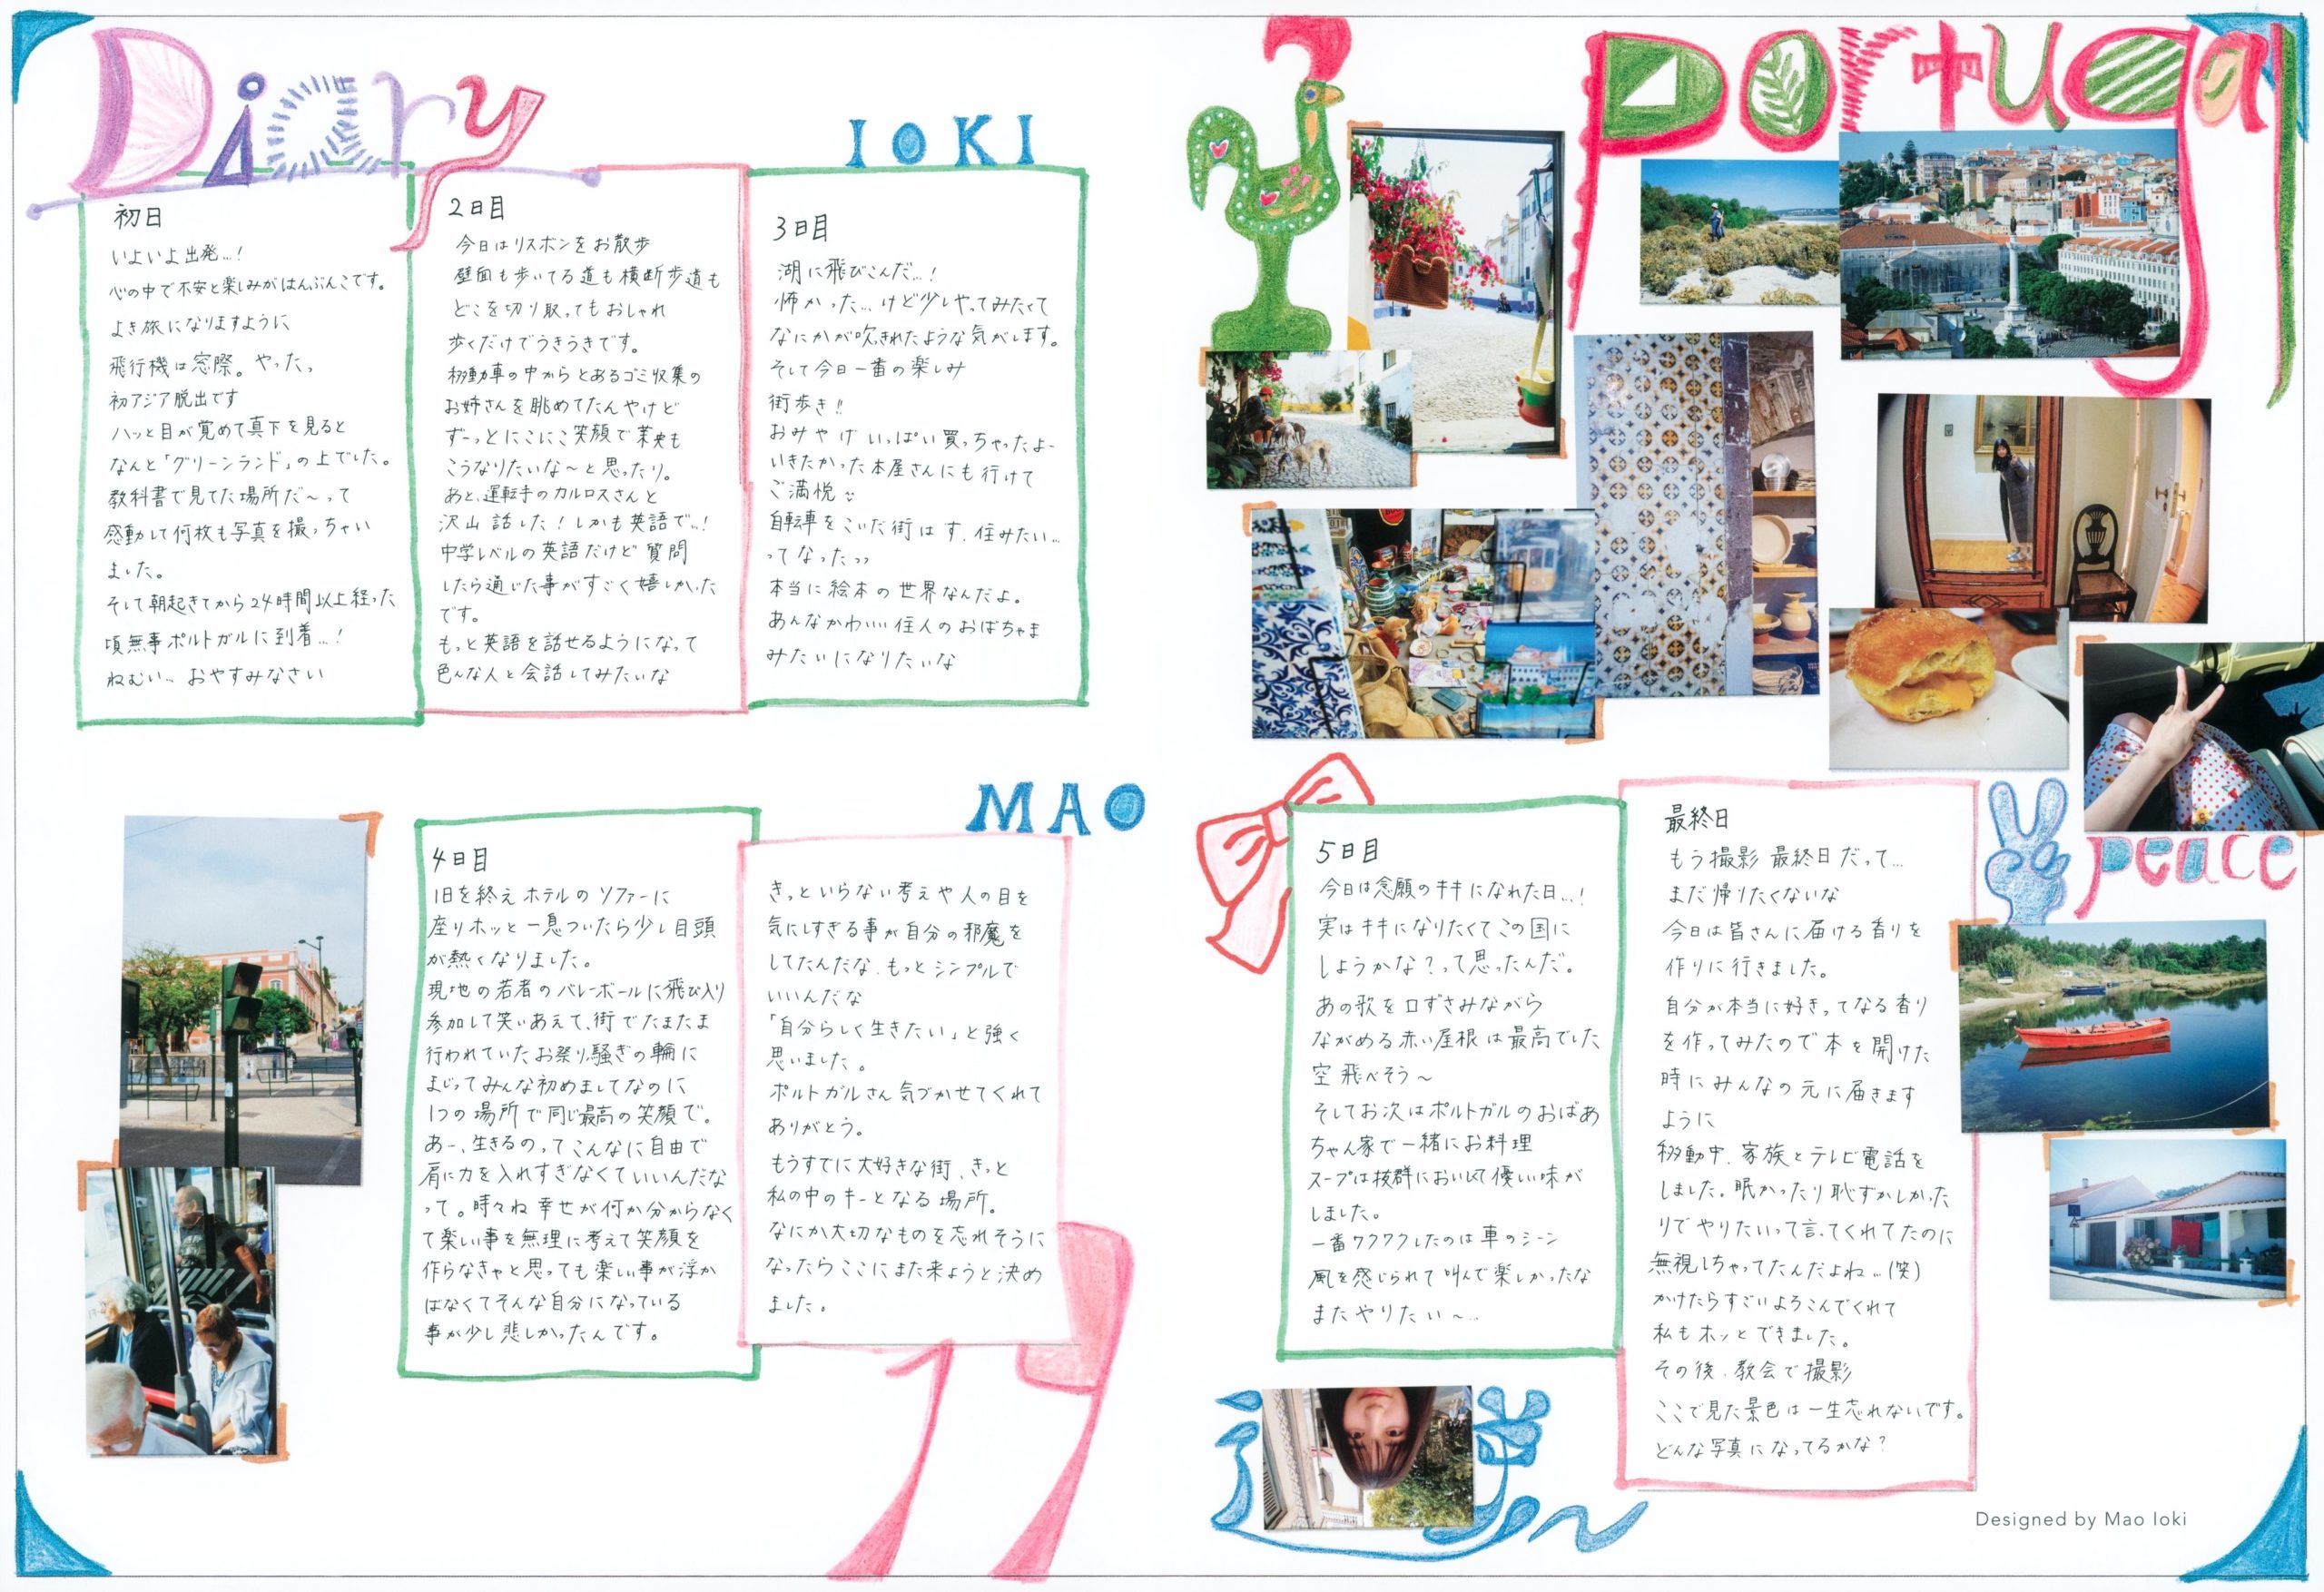 Diary
IOKI
初日
いよいよ出発…!
心の中で不安と楽しみがはんぶんこです。
よき旅になりますように
飛行機は窓際。やった。
初アジア脱出です
ハッと目が覚めて真下を見ると
なんと「グリーンランド」の上でした。
教科書で見てた場所だ〜って
感動して何枚も写真を撮っちゃい
ました。
そして朝起きてから24時間以上経った
頃無事ポルトガルに到着…!
ねむい… おやすみなさい
2日目
今日はリスボンをお散歩
壁面も歩いてる道も横断歩道も
どこを切り取ってもおしゃれ
歩くだけでうきうきです。
移動車の中からとあるゴミ収集の
お姉さんを眺めてたんやけど
ずーっとにこにこ笑顔で茉央も
こうなりたいな〜と思ったり。
あと、運転手のカルロスさんと
沢山話した!しかも英語で…!
中学レベルの英語だけど質問
したら通じた事がすごく嬉しかった
です。
もっと英語を話せるようになって
色んな人と会話してみたいな
3日目
湖に飛びこんだ…!
怖かった…けど少しやってみたくて
なにかが吹きれたような気がします。
そして今日一番の楽しみ
街歩き!!
おみやげいっぱい買っちゃったよー
いきたかった本屋さんにも行けて
ご満悦
自転車をこいだ街はす、住みたい…
ってなったっっ
本当に絵本の世界なんだよ。
あんなかわいい住人のおばちゃま
みたいになりたいな
MAO
4日目
1日を終えホテルのソファーに
座りホッと一息ついたら少し目頭
が熱くなりました。
現地の若者のバレーボールに飛び入り
参加して笑いあえて、街でたまたま
行われていたお祭り騒ぎの輪に
まじってみんな初めましてなのに
1つの場所で同じ最高の笑顔で。
あー、生きるのってこんなに自由で
肩に力を入れすぎなくていいんだな
って。時々ね幸せが何か分からなく
て楽しい事を無理に考えて笑顔を
作らなきゃと思っても楽しい事が浮か
ばなくてそんな自分になっている
事が少し悲しかったんです。
きっといらない考えや人の目を
気にしすぎる事が自分の邪魔を
してたんだな、もっとシンプルで
いいんだな
「自分らしく生きたい」と強く
思いました。
ポルトガルさん気づかせてくれて
ありがとう。
もうすでに大好きな街、きっと
私の中のキーとなる場所。
なにか大切なものを忘れそうに
なったらここにまた来ようと決め
ました。
19
Portugal
peace
5日目
今日は念願のキキになれた日…!
実はキキになりたくてこの国に
しようかな?って思ったんだ。
あの歌を口ずさみながら
ながめる赤い屋根は最高でした
空飛べそう〜
そしてお次はポルトガルのおばあ
ちゃん家で一緒にお料理
スープは抜群においしくて優しい味が
しました。
一番ワクワクしたのは車のシーン
風を感じられて叫んで楽しかったな
またやりたい〜…
最終日
もう撮影最終日だって…
まだ帰りたくないな
今日は皆さんに届ける香りを
作りに行きました。
自分が本当に好きってなる香り
を作ってみたので本を開けた
時にみんなの元に届きます
ように
移動中、家族とテレビ電話を
しました。眠かったり恥ずかしかった
りでやりたいって言ってくれてたのに
無視しちゃってたんだよね…(笑)
かけたらすごいよろこんでくれて
私もホッとできました。
その後、教会で撮影
ここで見た景色は一生忘れないです。
どんな写真になってるかな?
Designed by Mao Ioki